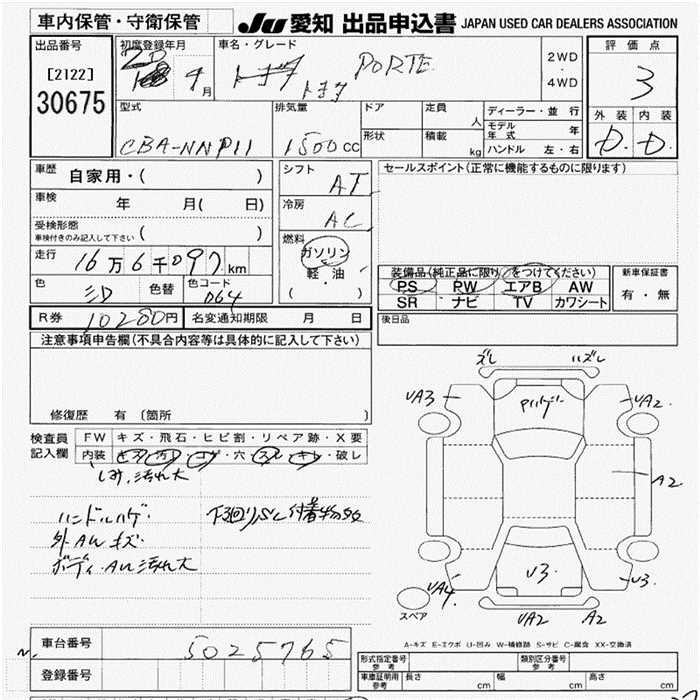 車内保管・守衛保管
JU 愛知 出品申込書 JAPAN USED CAR DEALERS ASSOCIATION
出品番号
[2122]
30675
初度登録年月
20
9月
車名・グレード
トヨタ PORTE
2WD
・
4WD
評価点
3
外装 内装
D. D.
型式
CBA-NNP11
排気量
1500cc
ドア
定員
人
形状
積載
kg
ディーラー・並行
モデル年式 年
ハンドル 左・右
車歴
自家用・( )
車検
年 月( 日)
受検形態
車検付きのみ記入して下さい ( )
走行
16万6千097km
色
色替
色コード
064
シフト
AT
冷房
AC
燃料
ガソリン
軽・油
( )
セールスポイント(正常に機能するものに限ります)
装備品(純正品に限り○をつけてください)
PS PW エアB AW
SR ナビ TV カワシート
新車保証書
有・無
R券 10280円
名変通知期限 月 日
後日品
注意事項申告欄(不具合内容等は具体的に記入して下さい)
修復歴 有 〔箇所 〕
検査員記入欄
FW キズ・飛石・ヒビ割・リペア跡・X要
内装 ・穴・ ・破レ
しみ、汚れ大
ハンドルハゲ・
外AWキズ・
ボディ・AW汚れ大
下廻り
ズレ
ハズレ
UA3
UA2
A2
UA4
U3
U3
UA2
A2
スペア
A-キズ E-エクボ U-凹み W-補修跡 S-サビ C-腐食 XX-交換済
車台番号
5025765
登録番号
形式指定番号 参考
類別区分番号 参考
車庫証明用 参考
長さ cm
幅 cm
高さ cm